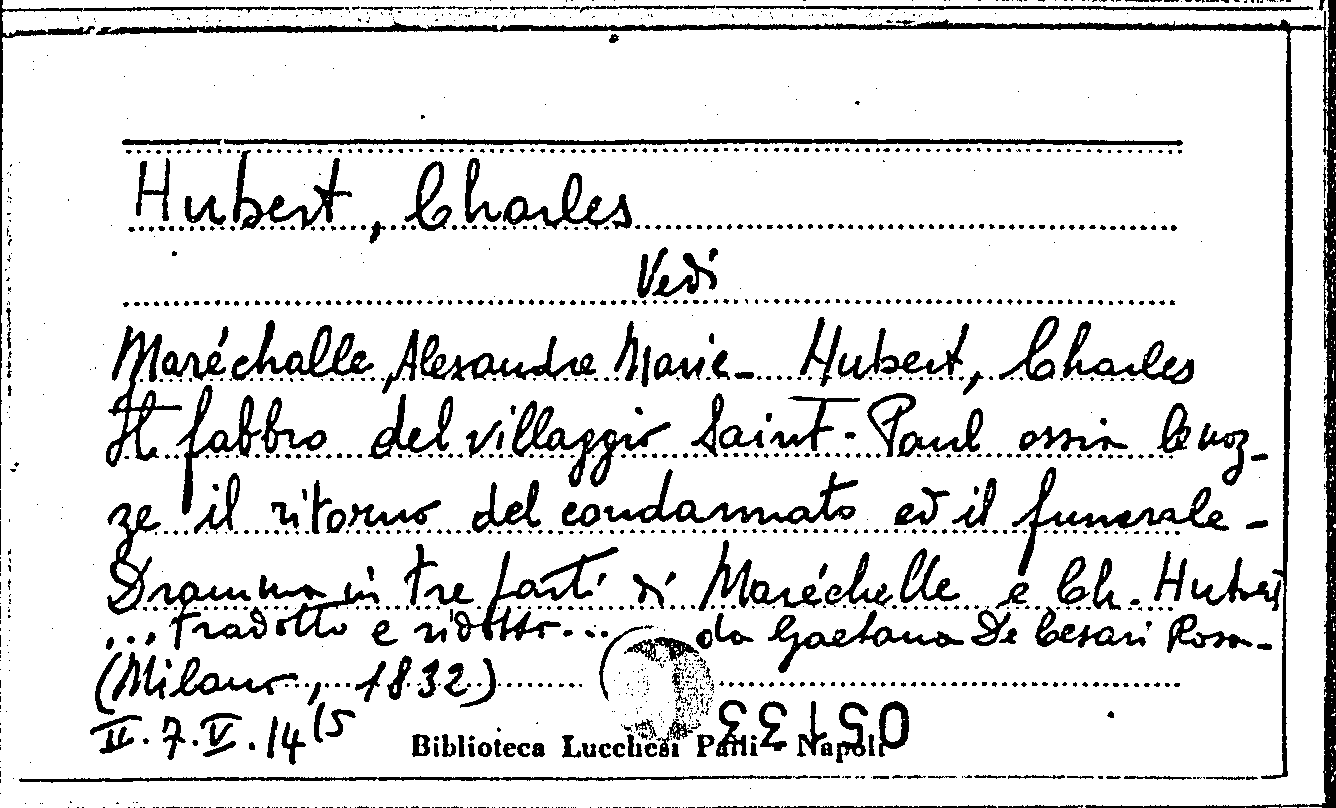 Hubert, Charles
Vedi
Maréchalle, Alexandre Marie - Hubert, Charles
Il fabbro del villaggio Saint-Paul ossia le noz-
ze il ritorno del condannato ed il funerale -
Dramma in tre parti di Maréchelle e Ch. Hubert
... tradotto e ridotto ... da Gaetana De Cesari Rosa-
(Milano, 1832)
II. 7. V. 14 (5
Biblioteca Lucchesi Palli - Napoli